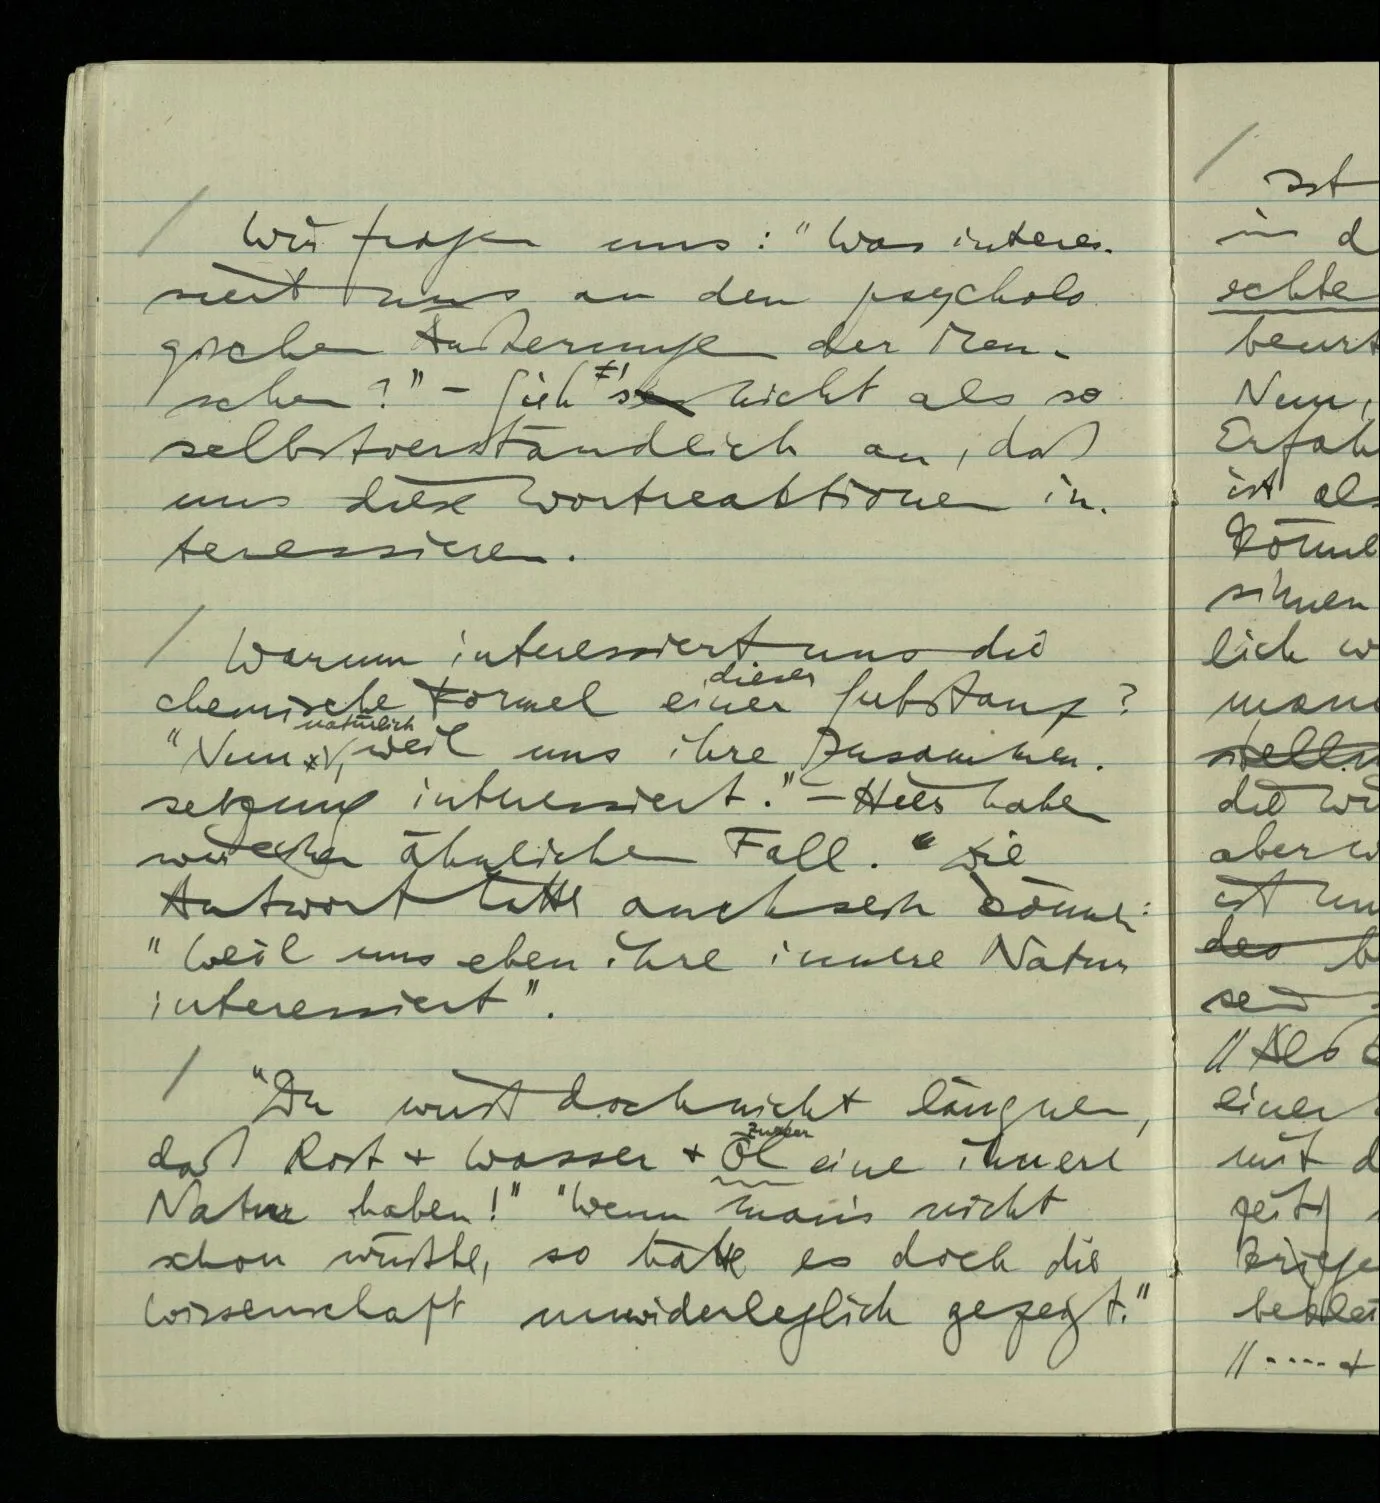 / Wir fragen uns: "Was interes-
siert uns an den psycholo
gischen Äußerungen der Men-
schen?" – Sieh 's nicht als so
selbstverständlich an, daß
uns diese Wortreaktionen in-
teressieren.
/ Warum interessiert uns die
chemische Formel einer dieser Substanz?
"Nun natürlich, weil uns ihre Zusammen-
setzung interessiert." – Hier haben
wir einen ähnlichen Fall. Die
Antwort hätte auch sein können:
"Weil uns eben ihre innere Natur
interessiert".
/ "Du wirst doch nicht läugnen,
daß Rost + Wasser + Öl Zucker eine innere
Natur haben!" "Wenn man's nicht
schon wüßte, so hätte es doch die
Wissenschaft unwiderleglich gezeigt."
/ ist
in d
echte
beurt
Nun,
Erfah
ist als
könne
sinnen
lich w
man
die wi
aber w
ist un
des b
sei
// Als
einer
mit d
zeit
kriege
beklei
// .... +